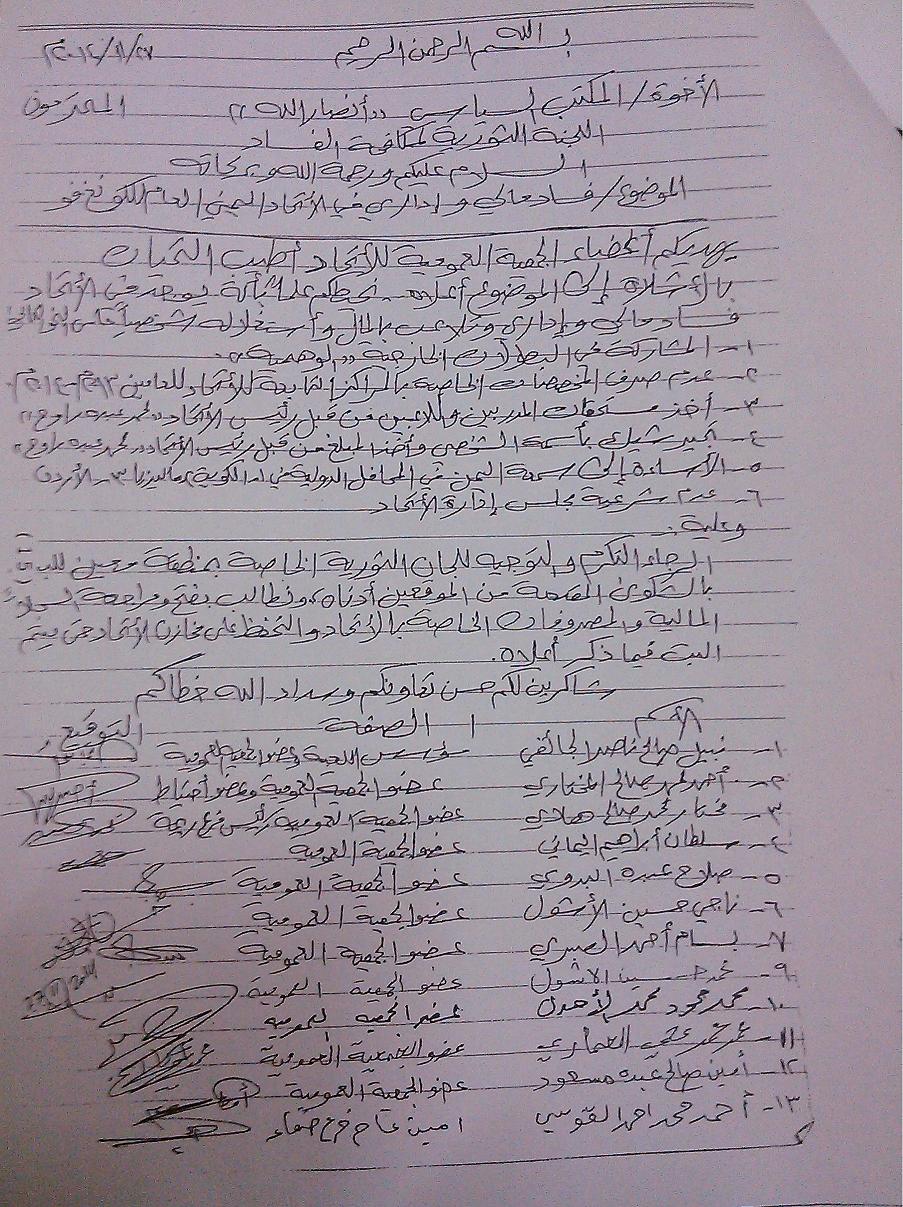 بسم الله الرحمن الرحيم ٢٠١٤/١١/٢٧م
الأخوة/ المكتب السياسي "أنصار الله" المحترمون
اللجنة الثورية لمكافحة الفساد
السلام عليكم ورحمة الله وبركاته
الموضوع/ فساد مالي وإداري في الاتحاد اليمني العام للكونغ فو
يهديكم أعضاء الجمعية العمومية للأتحاد أطيب التحيات
بالأشارة إلى الموضوع أعلاه نحيطكم علماً بأنة يوجد في الأتحاد
فساد مالي وإداري وتلاعب بالمال وأستغلاله شخصياً
١- المشاركة في البطولات الخارجية "الوهمية".
٢- عدم صرف المخصصات الخاصة بالمراكز التابعة للأتحاد للعامين ٢٠١٣م-٢٠١٤م
٣- أخذ مستحقات المدربين واللاعبين من قبل رئيس الأتحاد "محمد عبده راوح"
٤- شيك بأسمة الشخصي وأخذ المبلغ من قبل رئيس الأتحاد "محمد عبده راوح"
٥- الأساءة إلى سمعة اليمن في المحافل الدولية في ماليزيا ٣- الأردن
٦- عدم شرعية مجلس إدارة الأتحاد
وعلية:
الرجاء التكرم والتوجية للجان الثورية الخاصة بمنطقة معين
بالشكوى المقدمة من الموقعين أدناه، ونطالب بفتح ومراجعة السجلات
المالية والمصروفات الخاصة بالأتحاد والتحفظ على مخازن الأتحاد حتى يتم
البت فيما ذكر أعلاه.
شاكرين لكم حسن تعاونكم وسدد الله خطاكم
الأسم الصفة التوقيع
١- نبيل صالح ناصر الجائفي مؤسس اللعبة وعضو الجمعية العمومية
٢- أحمد محمد صالح المختاري عضو الجمعية العمومية وعضو أحتياط
٣- مختار محمد صالح هادي عضو الجمعية العمومية رئيس فرع ريمة
٤- سلطان أبراهيم اليماني عضو الجمعية العمومية
٥- صلاح عبده البدوي عضو الجمعية العمومية
٦- ناجي حسين الأشول عضو الجمعية العمومية
٧- بسام أحمد الصبري عضو الجمعية العمومية
٩- محمد حسين الاشول عضو الجمعية العمومية
١٠- محمد محمود محمد الأهدل عضو الجمعية العمومية
١١- علي العماري عضو الجمعية العمومية
١٢- أمين صالح عبده مسعود عضو الجمعية العمومية
١٣- أحمد محمد احمد القوسي امين عام فرع صنعاء